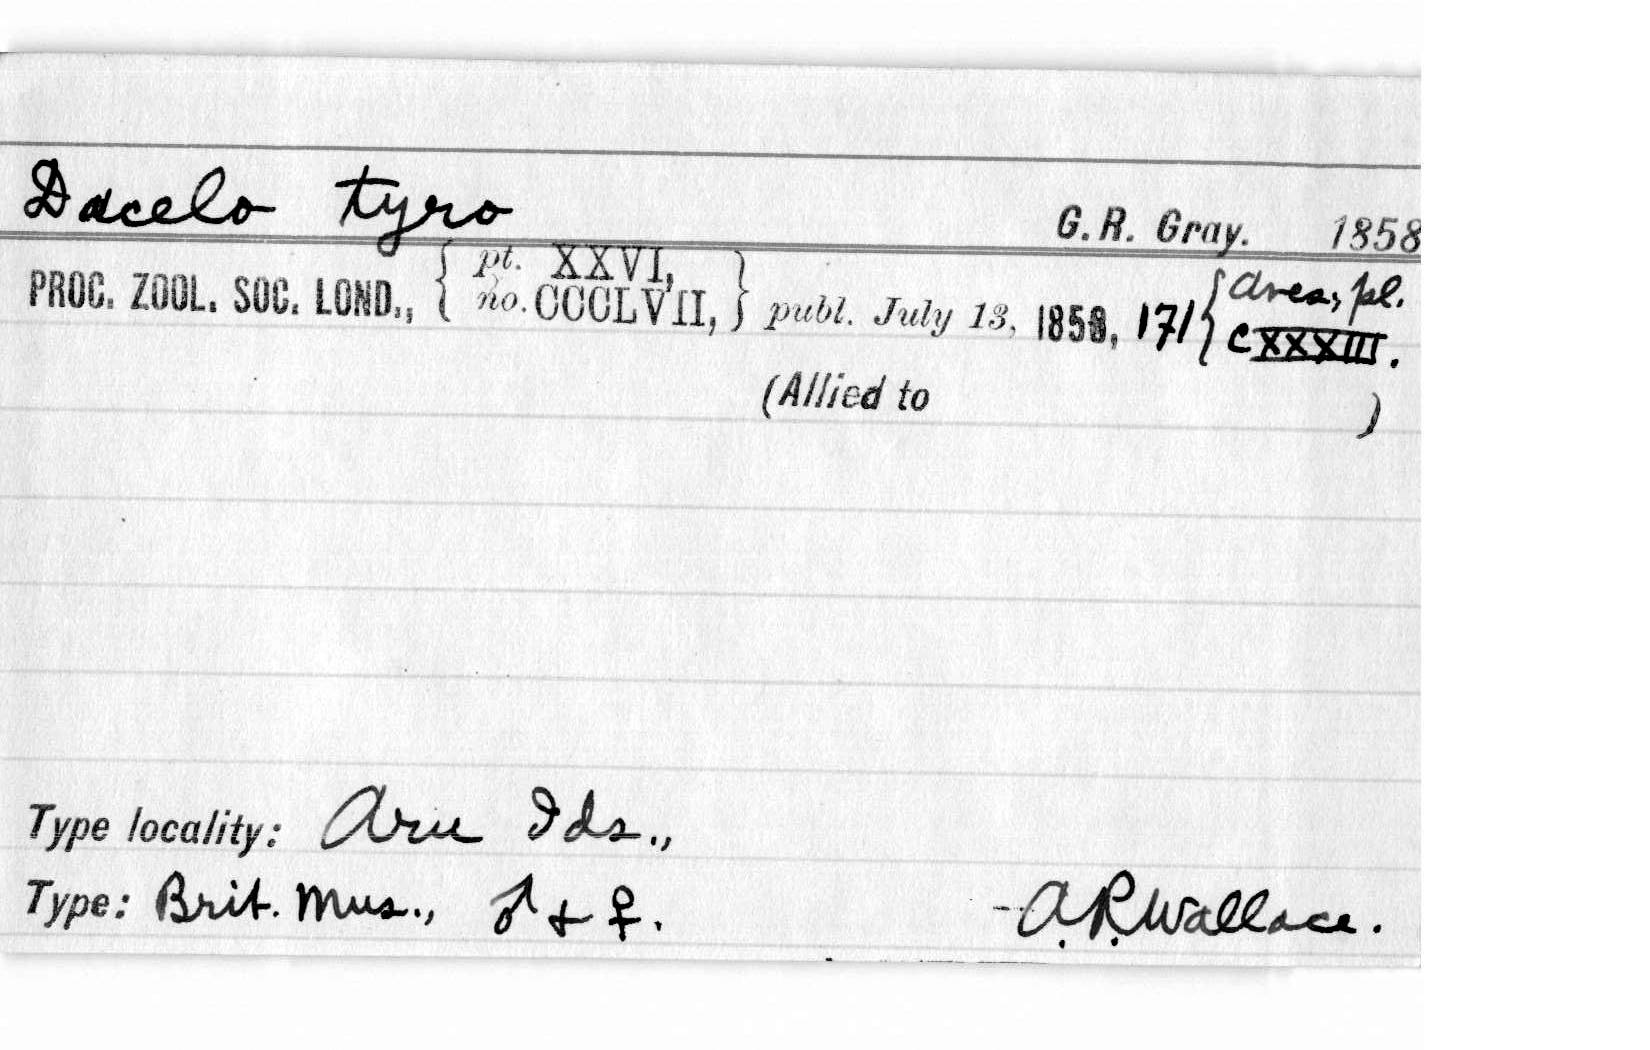 Dacelo tyro
G. R. Gray. 1858
PROC. ZOOL. SOC. LOND., { pt. XXVI, no. CCCLVII, } publ. July 13, 1858, 171 { Aves, pl. CXXXIII.
(Allied to )
Type locality: Aru Ids.,
Type: Brit. Mus., ♂ + ♀. - A.R. Wallace.